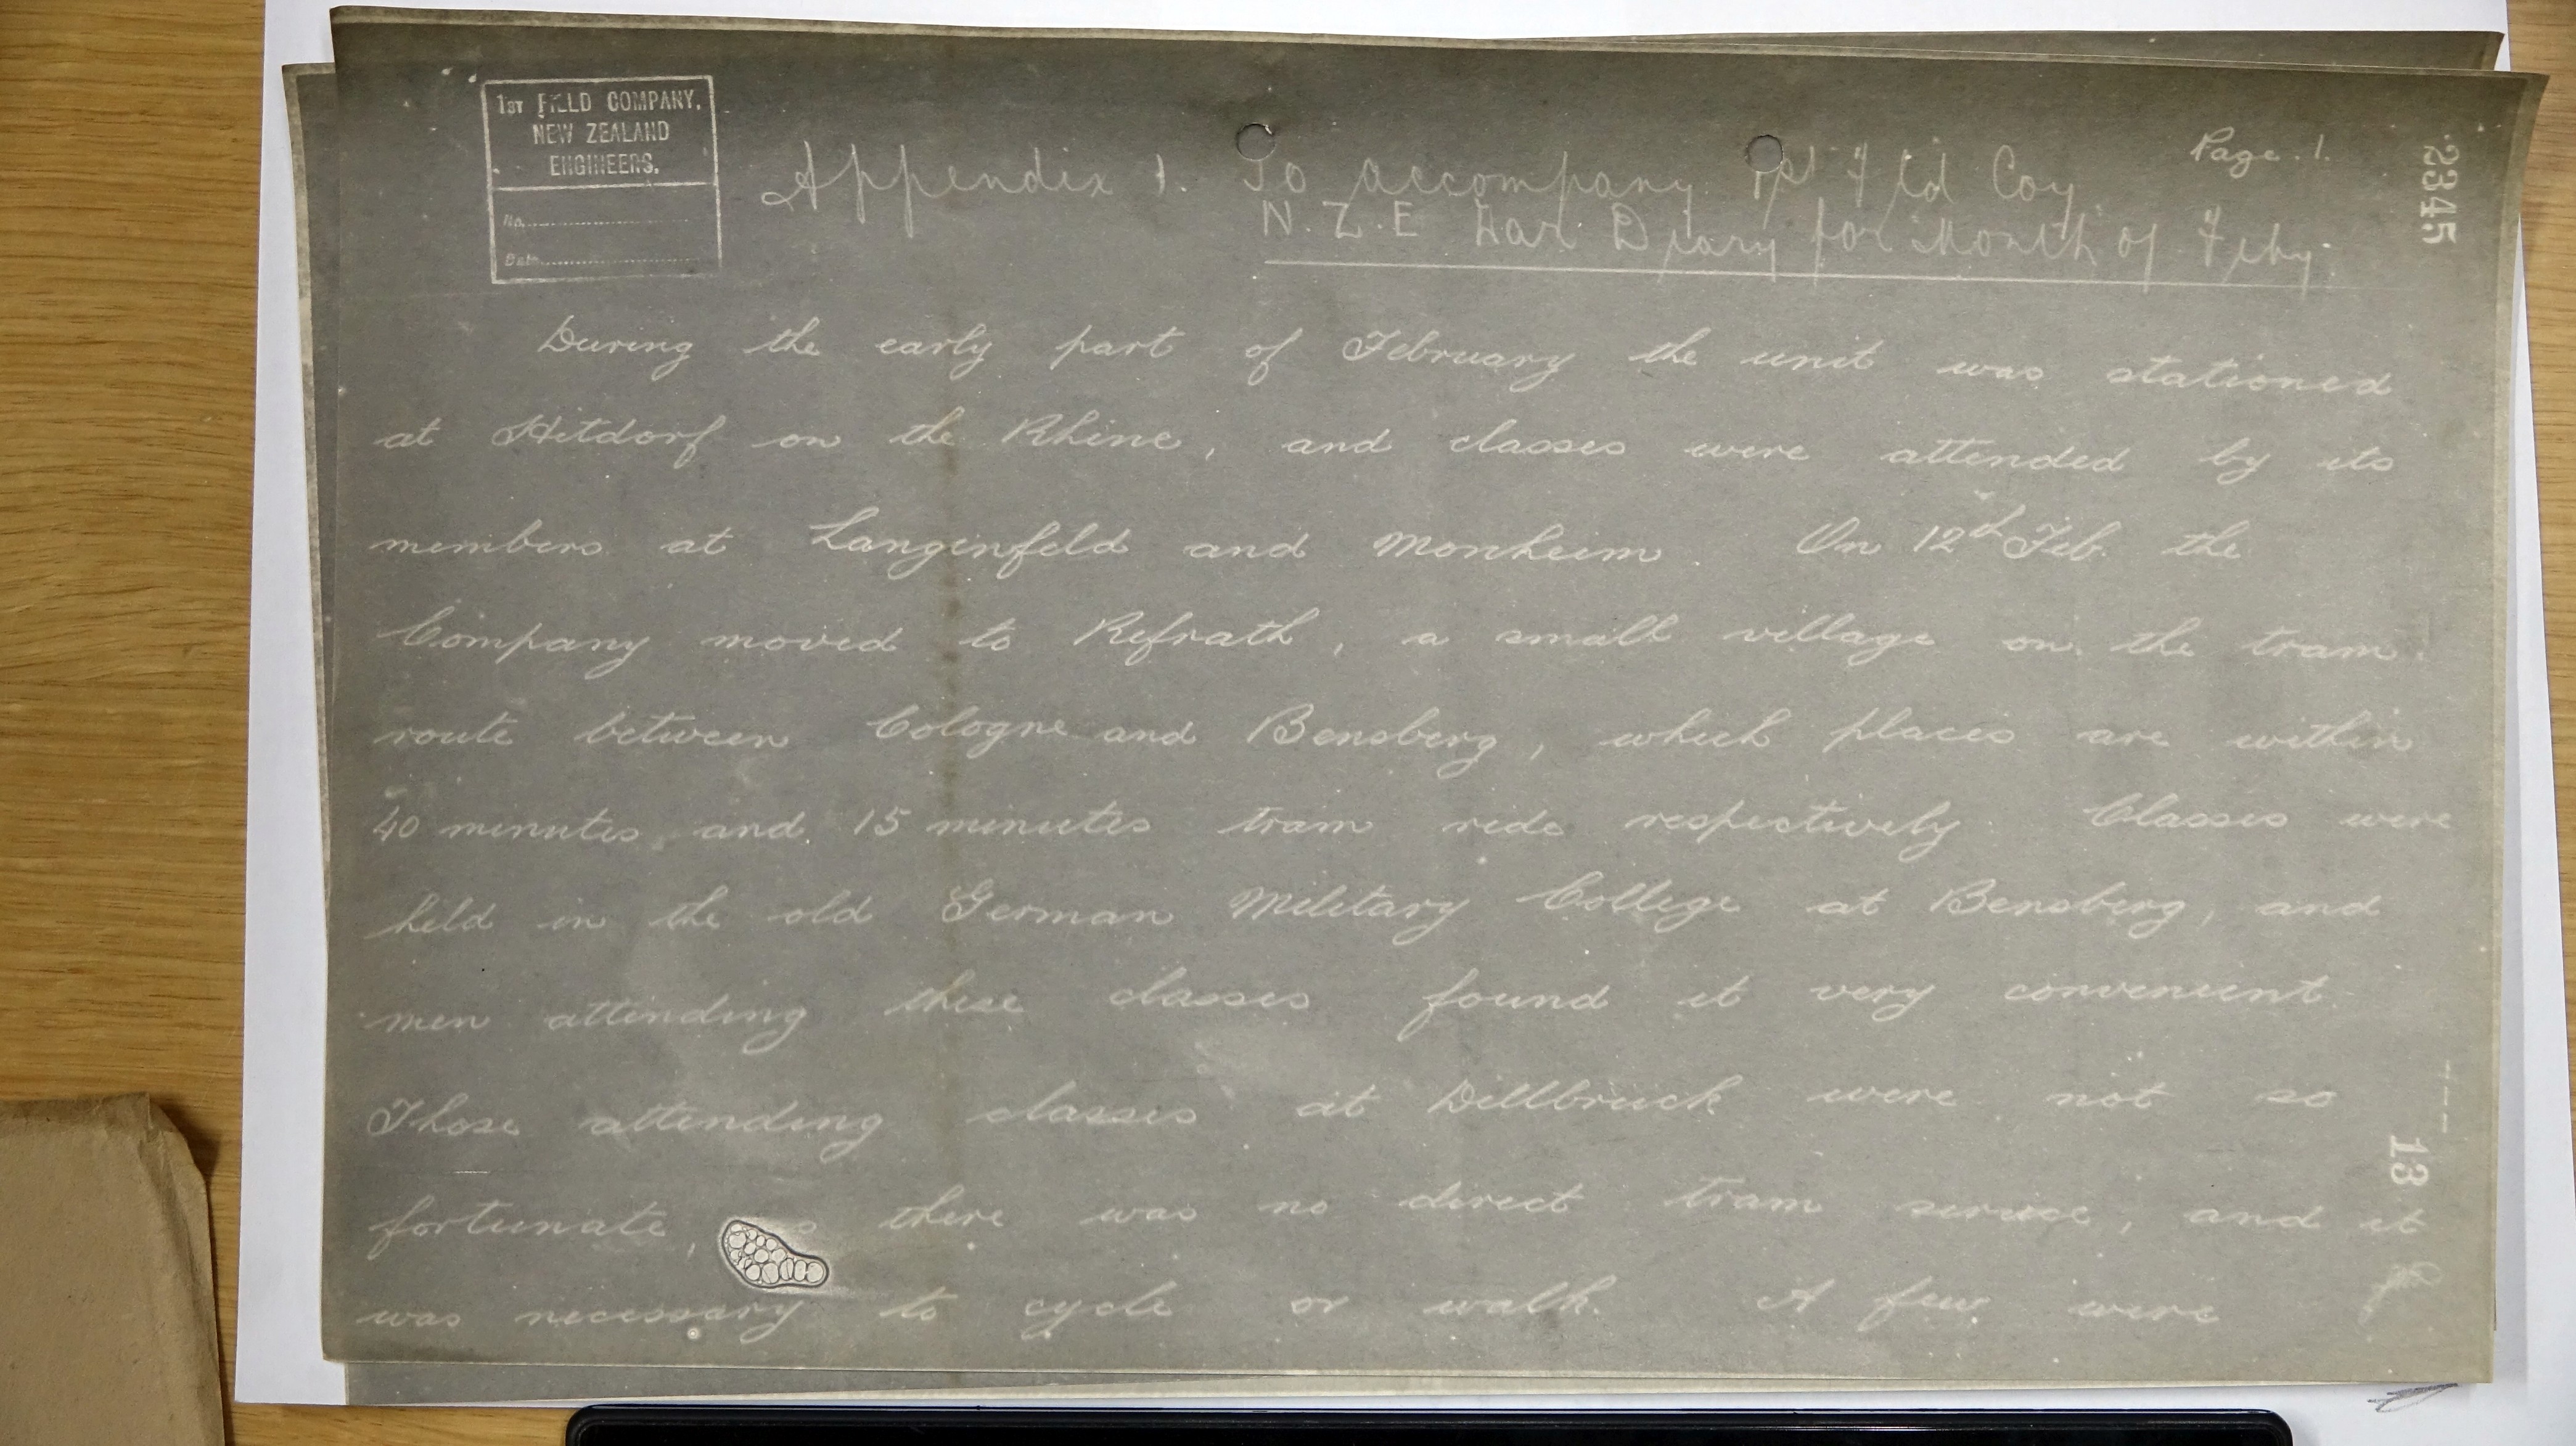 1ST FIELD COMPANY.
NEW ZEALAND
ENGINEERS.
No.
Date
Page. 1.
2345
Appendix 1. To accompany 1st Fld Coy
N.Z.E War Diary for Month of Feby.
During the early part of February the unit was stationed
at Hitdorf on the Rhine, and classes were attended by its
members at Langenfeld and Monheim On 12th Feb. the
Company moved to Refrath, a small village on the tram
route between Cologne and Bensberg, which places are within
40 minutes and 15 minutes tram ride respectively. Classes were
held in the old German Military College at Bensberg, and
men attending these classes found it very convenient.
Those attending classes at Dellbruck were not so
fortunate, there was no direct tram service, and it
was necessary to cycle or walk. A few were
13